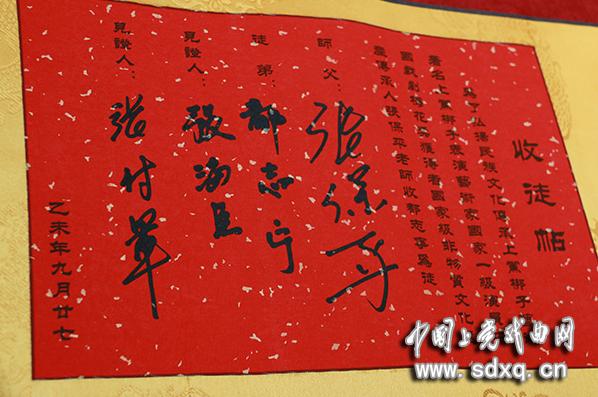 收徒帖
為了弘揚民族文化傳承上黨梆子
著名上黨梆子表演藝術家國家一級演員
國戲劇梅花獎獲得者國家級非物質文化
產傳承人張保平老師收郝志寧為徒
師父：张保平
徒弟：郝志宁
見證人：
見證人：张付
乙未年九月廿七
中国上党戏曲网
www.sdxq.cn